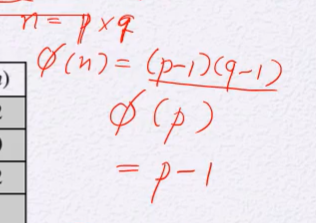 n = p × q
φ(n) = (p-1)(q-1)
φ(p)
= p-1